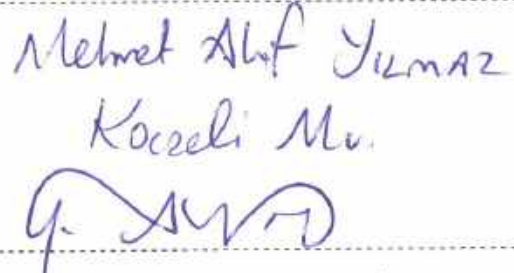 Mehmet Akif YILMAZ
Kocaeli Mv.